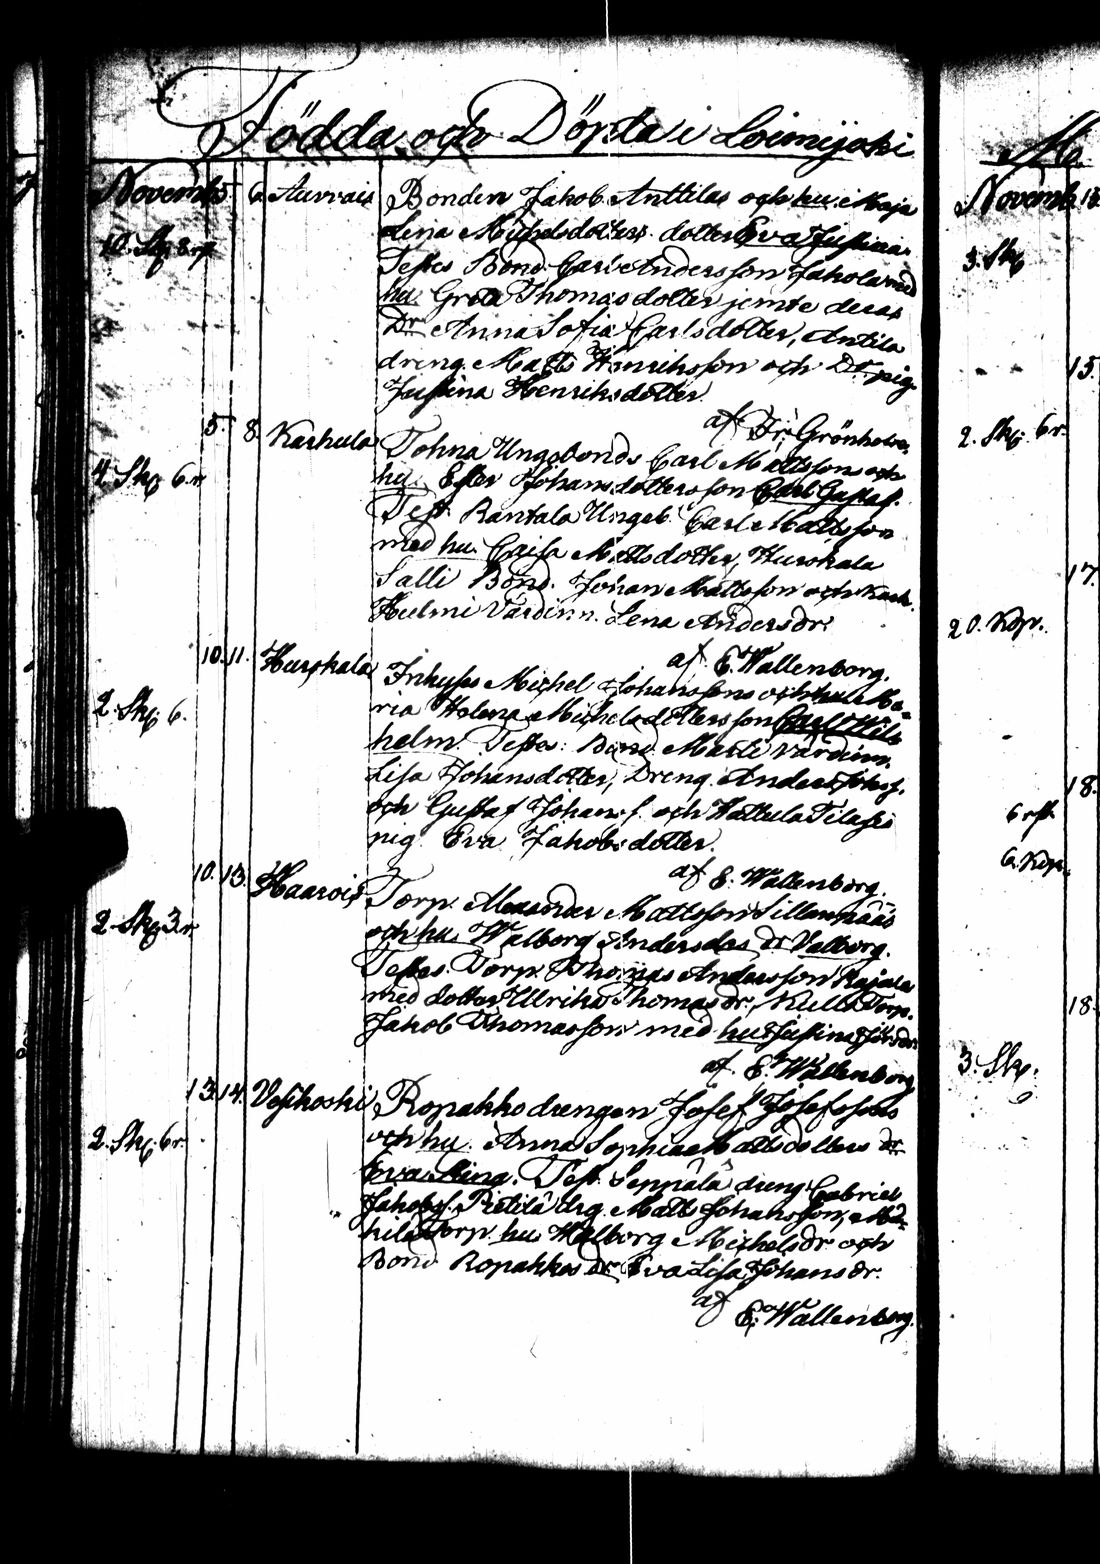 Födda och Döpta i Loimijoki
Novemb. 5. 6. Aurvais Bonden Jakob Anttilas och hu. Maja
Lena Michelsdotters dotter Eva Justina.
10. Sk. 8 r
Testes Bond Carl Andersson Jakola med
hu. Greta Thomasdotter jemte deras
Dr Anna Sofia Carlsdotter, Antila
dreng Matts Henriksson och Do pig.
Justina Henriksdotter.
af Dr Grönholm.
5. 8. Karhula Tohna Ungebonds Carl Mattssons och
hu. Ester Johansdotters son Carl Gustaf.
4 Sk. 6. r
Test. Rantala Ungeb. Carl Mattsson
med hu. Caisa Mattsdotter, Hurskala
Salli Bond. Johan Mattsson och Kark.
Hulmi Värdinn. Lena Andersdr.
af E. Wallenborg.
10. 11. Hurskala Inhyses Michel Johanssons och hu. Ma-
ria Helena Michelsdotters son Carl Wil-
2. Sk. 6.
helm. Testes: Bond Marti värdinn.
Lisa Johansdotter, Dreng. Anders Johsf.
och Gustaf Johans. f. och Hattula Tilasis
pig. Eva Jakobsdotter.
af E. Wallenborg.
10. 13. Haarois Torp. Alexander Mattsson Sillanpääs
och hu. Walborg Andersdrs dr Valborg.
2. Sk. 3. r.
Testes Torp. Thomas Andersson Rajala
med dotter Ulrika Thomasdr, Torp.
Jakob Thomasson med hu. Justina
af E. Wallenborg
13. 14. Vesikoski Ropakko drengen Josef Josefssons
och hu. Anna Sophia Mattsdotters dr
2. Sk. 6 r.
Eva Stina. Test. Seppälä dreng Gabriel
Jakobsf. Pietilä drg. Matts Johansson,
Torp. hu. Walborg Michelsdr och
Bond Ropakkos Dr Eva Lisa Johansdr.
af
E. Wallenborg.
Novemb. 13
3. Sk
15.
2. Sk. 6 r.
17.
20. Kop.
18.
6. Kop.
18.
3. Sk.